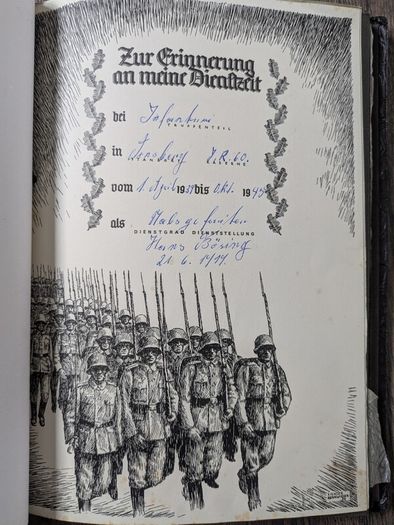 Zur Erinnerung
an meine Dienstzeit
bei Infanterie
TRUPPENTEIL
in J.R. 60.
vom 1. April 1939 bis Okt. 1945
als Stabsgefreiter
DIENSTGRAD DIENSTSTELLUNG
Hans Büsing
21. 6. 1917.